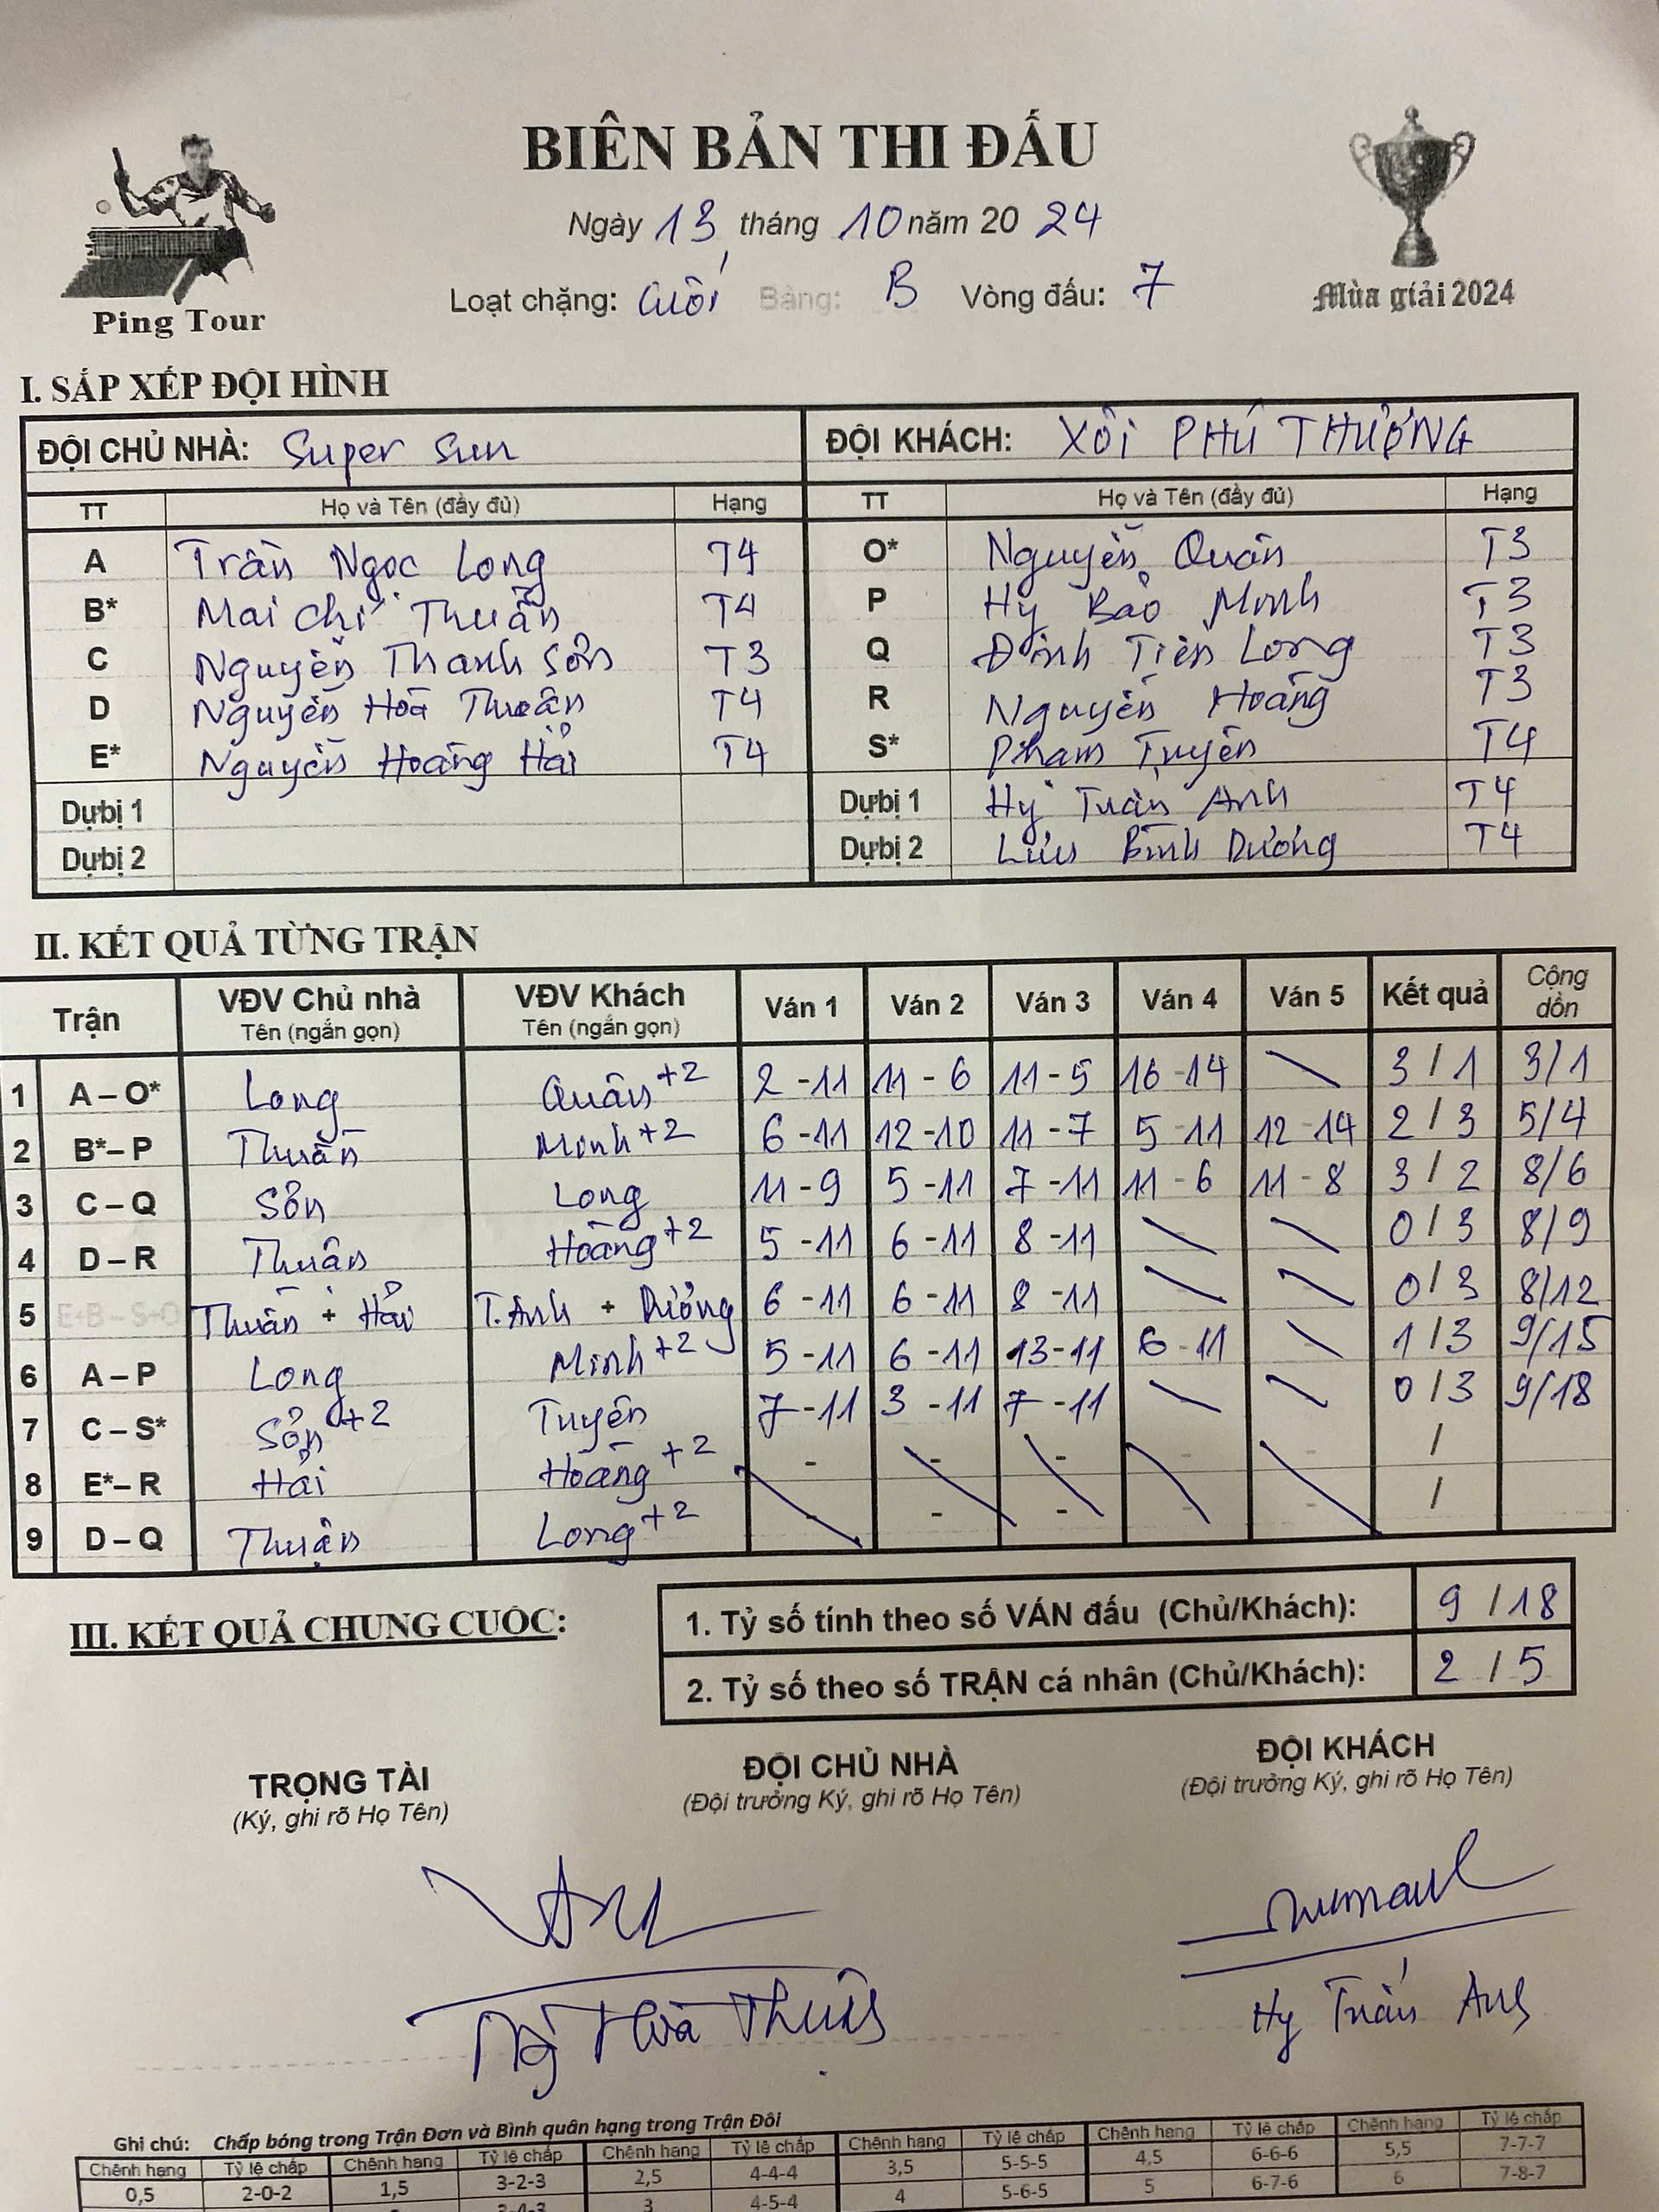 BIÊN BẢN THI ĐẤU
Ngày 13 tháng 10 năm 20 24
Loạt chặng: Cuối Bảng: B Vòng đấu: 7
Ping Tour
Mùa giải 2024
I. SẮP XẾP ĐỘI HÌNH
ĐỘI CHỦ NHÀ: Super Sun ĐỘI KHÁCH: XÔI PHÚ THƯỢNG
TT Họ và Tên (đầy đủ) Hạng TT Họ và Tên (đầy đủ) Hạng
A Trần Ngọc Long T4 O* Nguyễn Quân T3
B* Mai Chí Thuần T4 P Hy Bảo Minh T3
C Nguyễn Thanh Sơn T3 Q Đinh Tiến Long T3
D Nguyễn Hoà Thuận T4 R Nguyễn Hoàng T3
E* Nguyễn Hoàng Hải T4 S* Phạm Tuyên T4
Dự bị 1 Dự bị 1 Hy Tuấn Anh T4
Dự bị 2 Dự bị 2 Lưu Bình Dương T4
II. KẾT QUẢ TỪNG TRẬN
Trận VĐV Chủ nhà Tên (ngắn gọn) VĐV Khách Tên (ngắn gọn) Ván 1 Ván 2 Ván 3 Ván 4 Ván 5 Kết quả Cộng dồn
1 A – O* Long Quân +2 2 - 11 11 - 6 11 - 5 16 - 14 3 / 1 3/1
2 B* – P Thuần Minh +2 6 - 11 12 - 10 11 - 7 5 - 11 12 - 14 2 / 3 5/4
3 C – Q Sơn Long 11 - 9 5 - 11 7 - 11 11 - 6 11 - 8 3 / 2 8/6
4 D – R Thuận Hoàng +2 5 - 11 6 - 11 8 - 11 0 / 3 8/9
5 E+B – S+O Thuần + Hải T.Anh + Dương 6 - 11 6 - 11 8 - 11 0 / 3 8/12
6 A – P Long Minh +2 5 - 11 6 - 11 13 - 11 6 - 11 1 / 3 9/15
7 C – S* Sơn +2 Tuyên 7 - 11 3 - 11 7 - 11 0 / 3 9/18
8 E* – R Hải Hoàng +2 - - - - - /
9 D – Q Thuận Long +2 - - - - - /
III. KẾT QUẢ CHUNG CUỘC:
1. Tỷ số tính theo số VÁN đấu (Chủ/Khách): 9 / 18
2. Tỷ số theo số TRẬN cá nhân (Chủ/Khách): 2 / 5
TRỌNG TÀI ĐỘI CHỦ NHÀ ĐỘI KHÁCH
(Ký, ghi rõ Họ Tên) (Đội trưởng Ký, ghi rõ Họ Tên) (Đội trưởng Ký, ghi rõ Họ Tên)
Ng Hoà Thuận Hy Tuấn Anh
Ghi chú: Chấp bóng trong Trận Đơn và Bình quân hạng trong Trận Đôi
Chênh hạng Tỷ lệ chấp Chênh hạng Tỷ lệ chấp Chênh hạng Tỷ lệ chấp Chênh hạng Tỷ lệ chấp Chênh hạng Tỷ lệ chấp Chênh hạng Tỷ lệ chấp
0,5 2-0-2 1,5 3-2-3 2,5 4-4-4 3,5 5-5-5 4,5 6-6-6 5,5 7-7-7
3-4-3 3 4-5-4 4 5-6-5 5 6-7-6 6 7-8-7